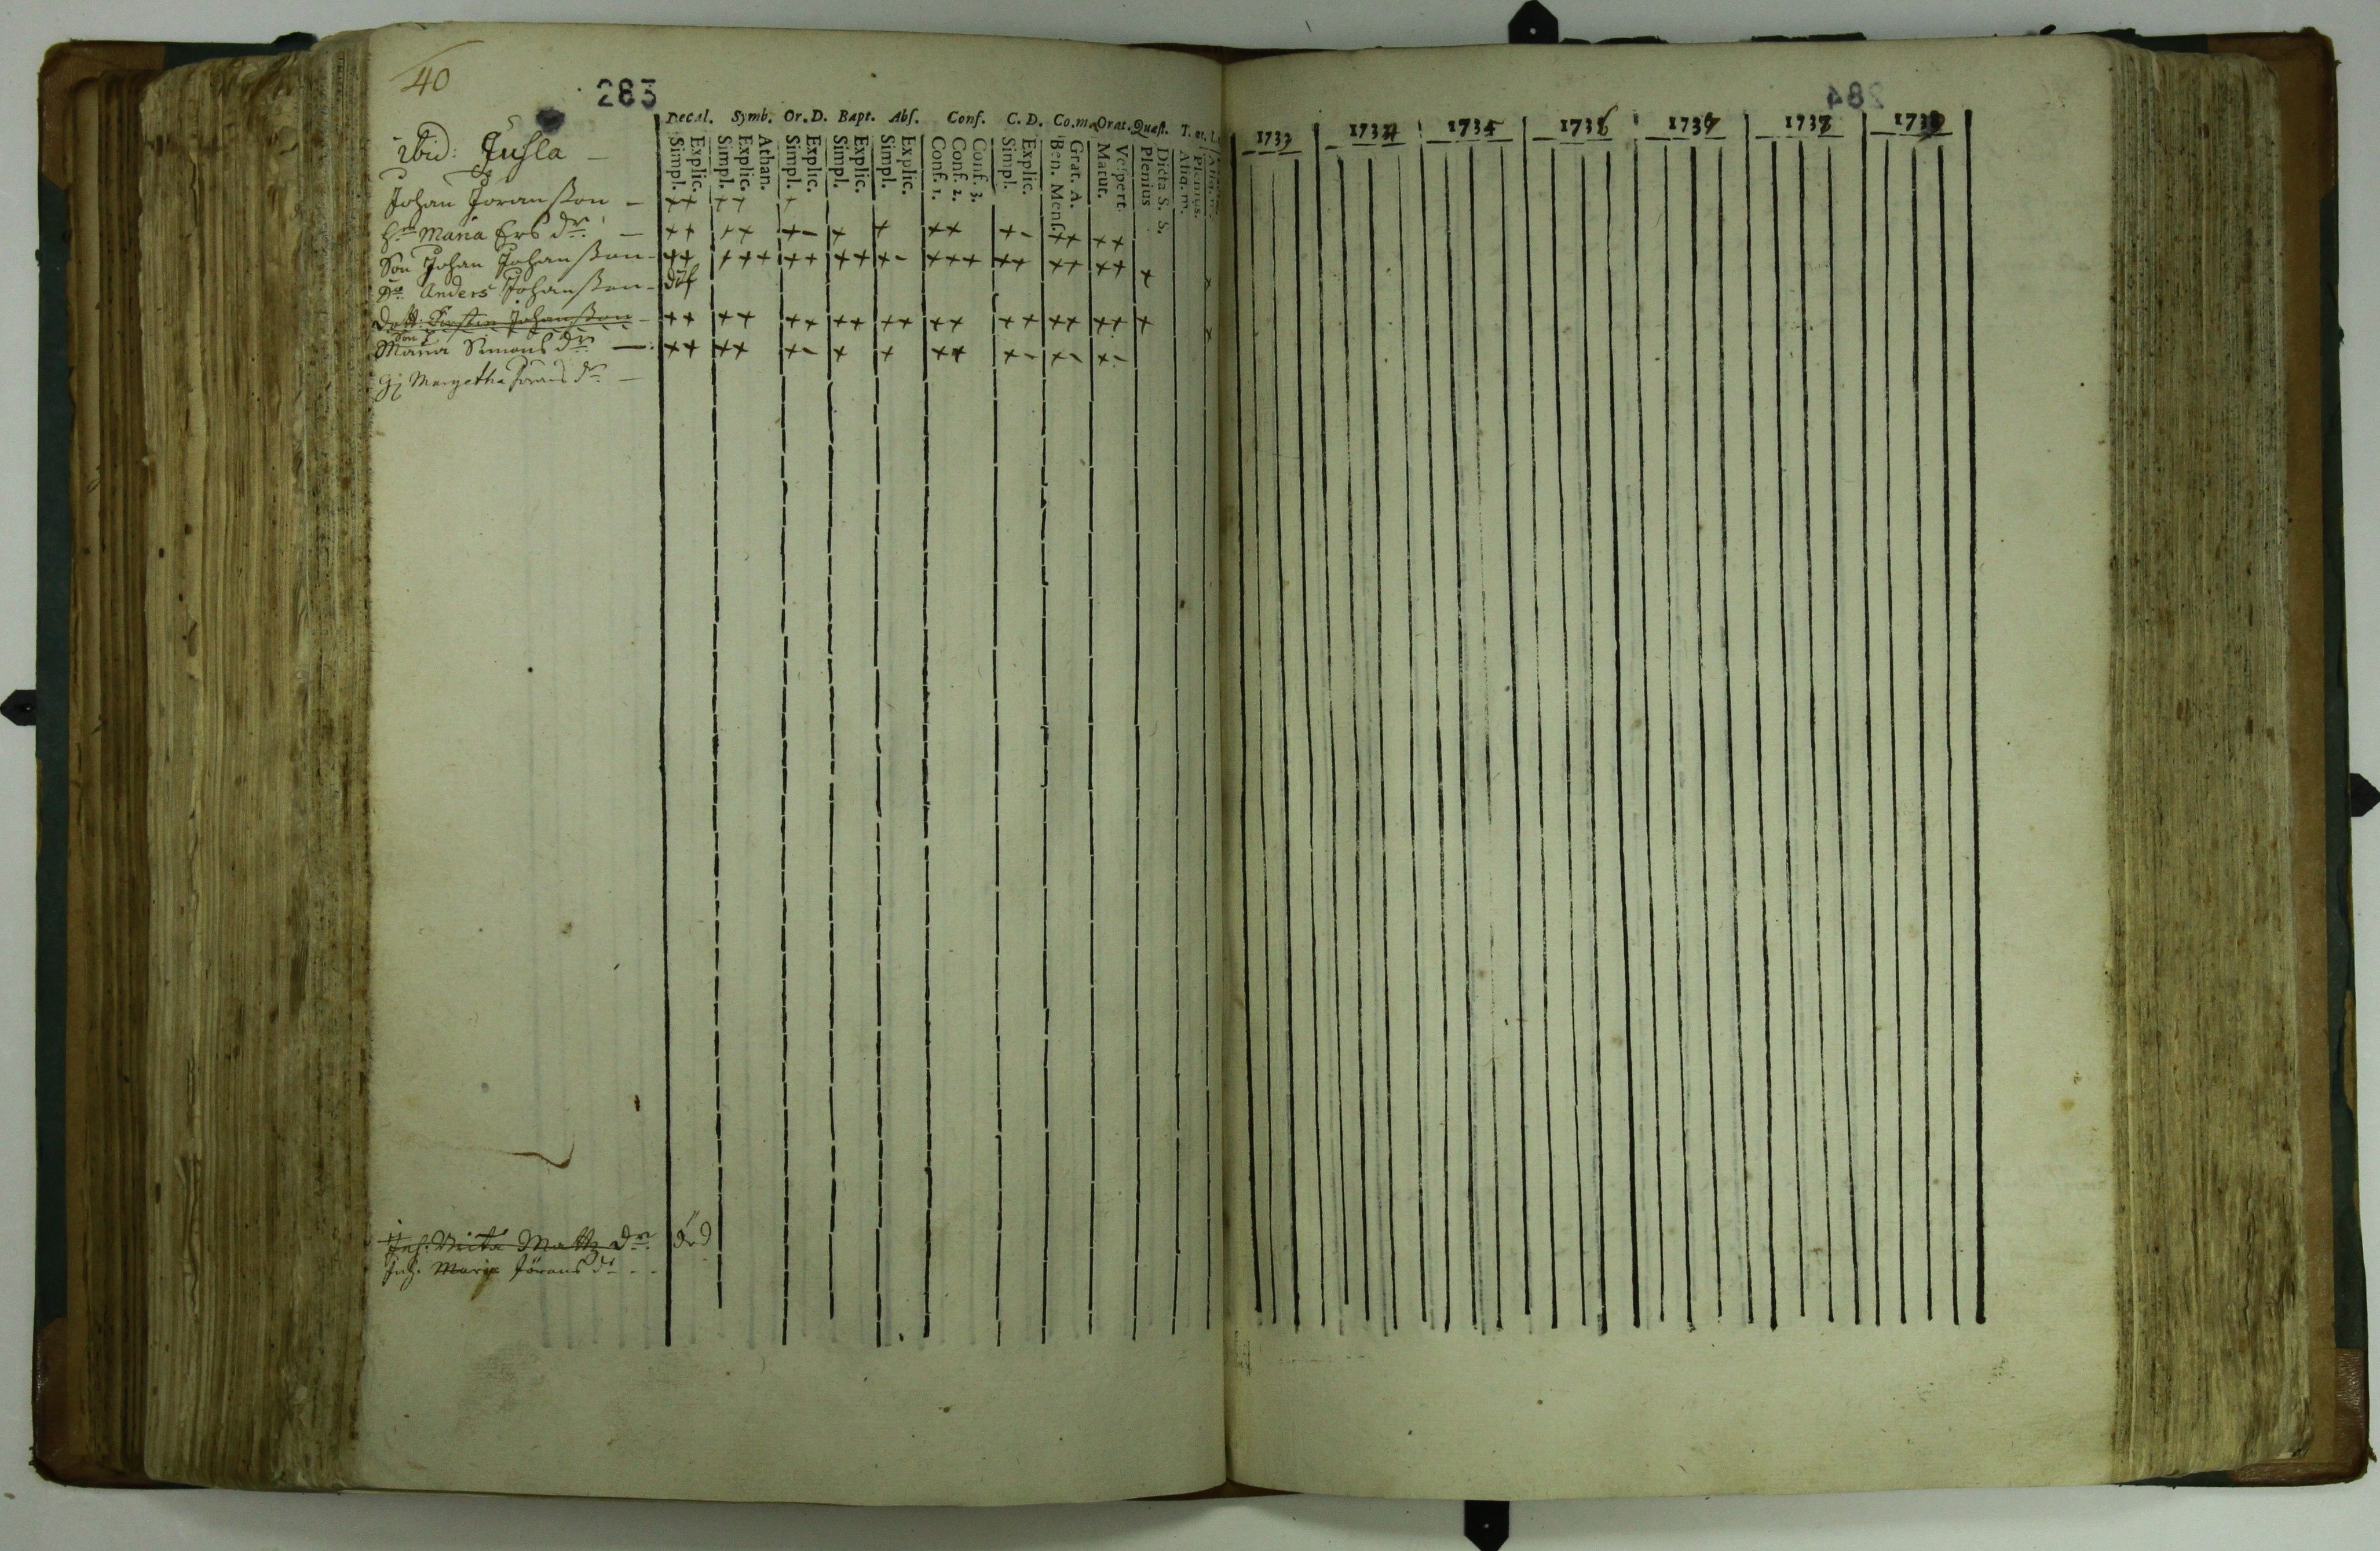 40
283
Decal. Symb. Or. D. Bapt. Abs. Conf. C. D. Co.m. Orat. Quæst. T.
Simpl. Explic. Simpl. Explic. Athan. Simpl. Explic. Simpl. Explic. Simpl. Explic. Conf. 1. Conf. 2. Conf. 3. Simpl. Explic. Ben. Mens. Grat. A. Matut. Vespert. Plenius Dicta S. S. Aliq. m. Plenius.
ibid: Jusla —
Johan Jöransson — ++ ++ +
H: Maria Ers dr: — ++ ++ +- + + ++ +- ++ ++
Son Johan Johansson - ++ +++ ++ ++ +- +++ ++ ++ ++ + +
Do Anders Johansson - döf
Dott: Kirstin Johansson - ++ ++ ++ ++ ++ ++ ++ ++ ++ + +
Maria Simons dr: — ++ ++ +- + + ++ +- +- +-
Margetha Jörans dr: —
Inh. Matts dr: död
Inh. Maria Jörans dr - -
284
1733 1734 1735 1736 1737 1738 1739